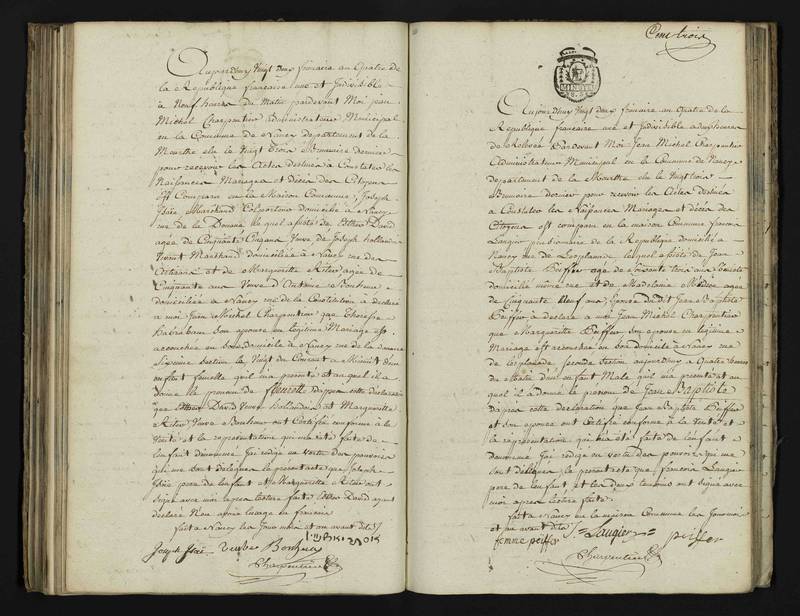 Aujourd'huy Vingt Deux frimaire an Quatre de
la Republique française une et Indivisible
à Neuf heures du Matin pardevant Moi jean
Michel Charpentier Administrateur Municipal
en la Commune de Nancy departement de la
Meurthe elu le Vingt Trois Brumaire dernier
pour recevoir les Actes destinés à Constater les
Naissances Mariages et décès des Citoyens
Est Comparu en la Maison Commune, Joseph
Isaïe Marchand Colporteur domicilié à Nancy
rue de la Douane lequel assisté de Esther David
agée de Cinquante Cinq ans Veuve de Joseph hollande
Vivant Marchand domiciliée à Nancy rue des
Artisans et de Marguerite agée de
Cinquante ans Veuve d'Antoine Bonheur
domiciliée à Nancy rue de la Constitution à déclaré
à moi Jean Michel Charpentier que
son épouse en légitime Mariage est
accouchée en son domicile à Nancy rue de la douane
Sixieme Section le Vingt du Courant à Minuit d'un
enfant femelle qu'il m'a presenté et auquel il a
donné le prenom de fleurette d'apres cette declaration
que Esther David Veuve Hollande et Marguerite
Veuve Bonheur ont Certifié conforme à la
Verité et la representation qui m'a été faite de
l'enfant denommé j'ai redigé en vertu des pouvoirs
qui me sont delegués le present acte que Joseph
Isaïe pere de l'enfant et Marguerite ont
signé avec moi apres lecture faite Esther David ayant
declaré Non
fait à Nancy les jour mois et an avant dits
Joseph Isaï Veuve Bonheur
Charpentier
Cent trois
Aujourd'huy Vingt deux frimaire an Quatre de la
Republique française une et Indivisible à dix heures
de Relevée Pardevant Moi Jean Michel Charpentier
Administrateur Municipal en la Commune de Nancy
departement de la Meurthe elu le Vingt trois
Brumaire dernier pour recevoir les Actes destinés
à Constater les Naissances Mariages et décès des
Citoyens est comparu en la maison Commune francois
Laugier pensionnaire de la Republique domicilié à
Nancy rue de l'esplanade, lequel assisté de Jean
Baptiste Peiffer agé de Soixante trois ans
domicilié même rue et de Madelaine agée
de Cinquante Neuf ans Epouse dudit Jean Baptiste
Peiffer à declaré à moi Jean Michel Charpentier
que Marguerite Peiffer son epouse en legitime
Mariage est accouchée en son domicile à Nancy rue
de l'esplanade seconde Section aujourd'huy à Quatre heures
du Matin d'un enfant Male qu'il m'a presenté et au
quel il a donné le prénom de Jean Baptiste
d'apres cette declaration que Jean Baptiste Peiffer
et son epouse ont certifié conforme à la Verité et
la representation qui m'a été faite de l'enfant
denommé j'ai redigé en vertu des pouvoirs qui me
sont delegués le present acte que francois Laugier
pere de l'enfant et les deux temoins ont signé avec
moi apres lecture faite
fait à Nancy en la maison Commune les jour mois
et an avant dits Laugier peiffer
femme peiffer
Charpentier